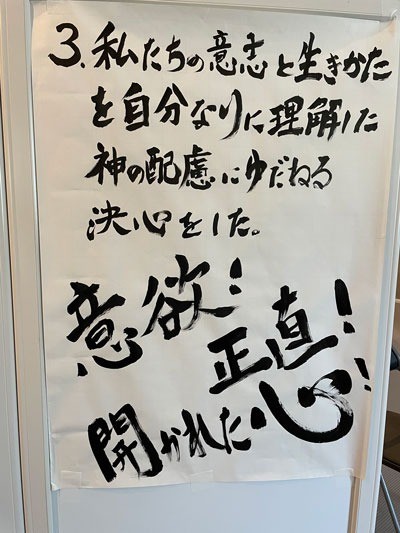 3. 私たちの意志と生きかた
を自分なりに理解した
神の配慮にゆだねる
決心をした。
意欲!
正直!
開かれた心!